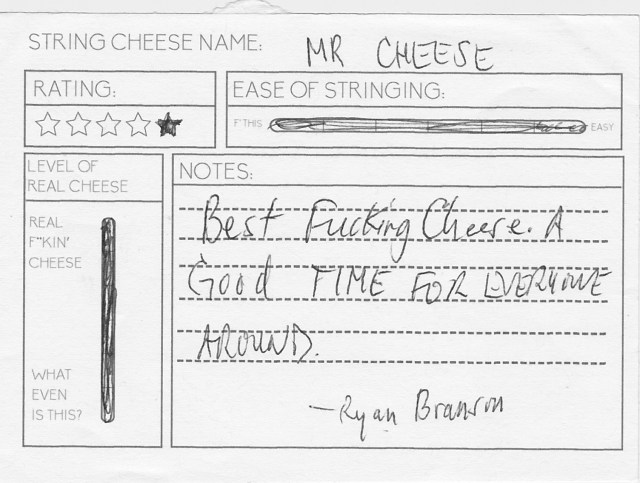 STRING CHEESE NAME: MR CHEESE
RATING:
EASE OF STRINGING:
F*THIS EASY
LEVEL OF
REAL CHEESE
REAL
F**KIN'
CHEESE
WHAT
EVEN
IS THIS?
NOTES:
Best Fucking Cheese. A
Good TIME FOR EVERYONE
AROUND.
—Ryan Branson